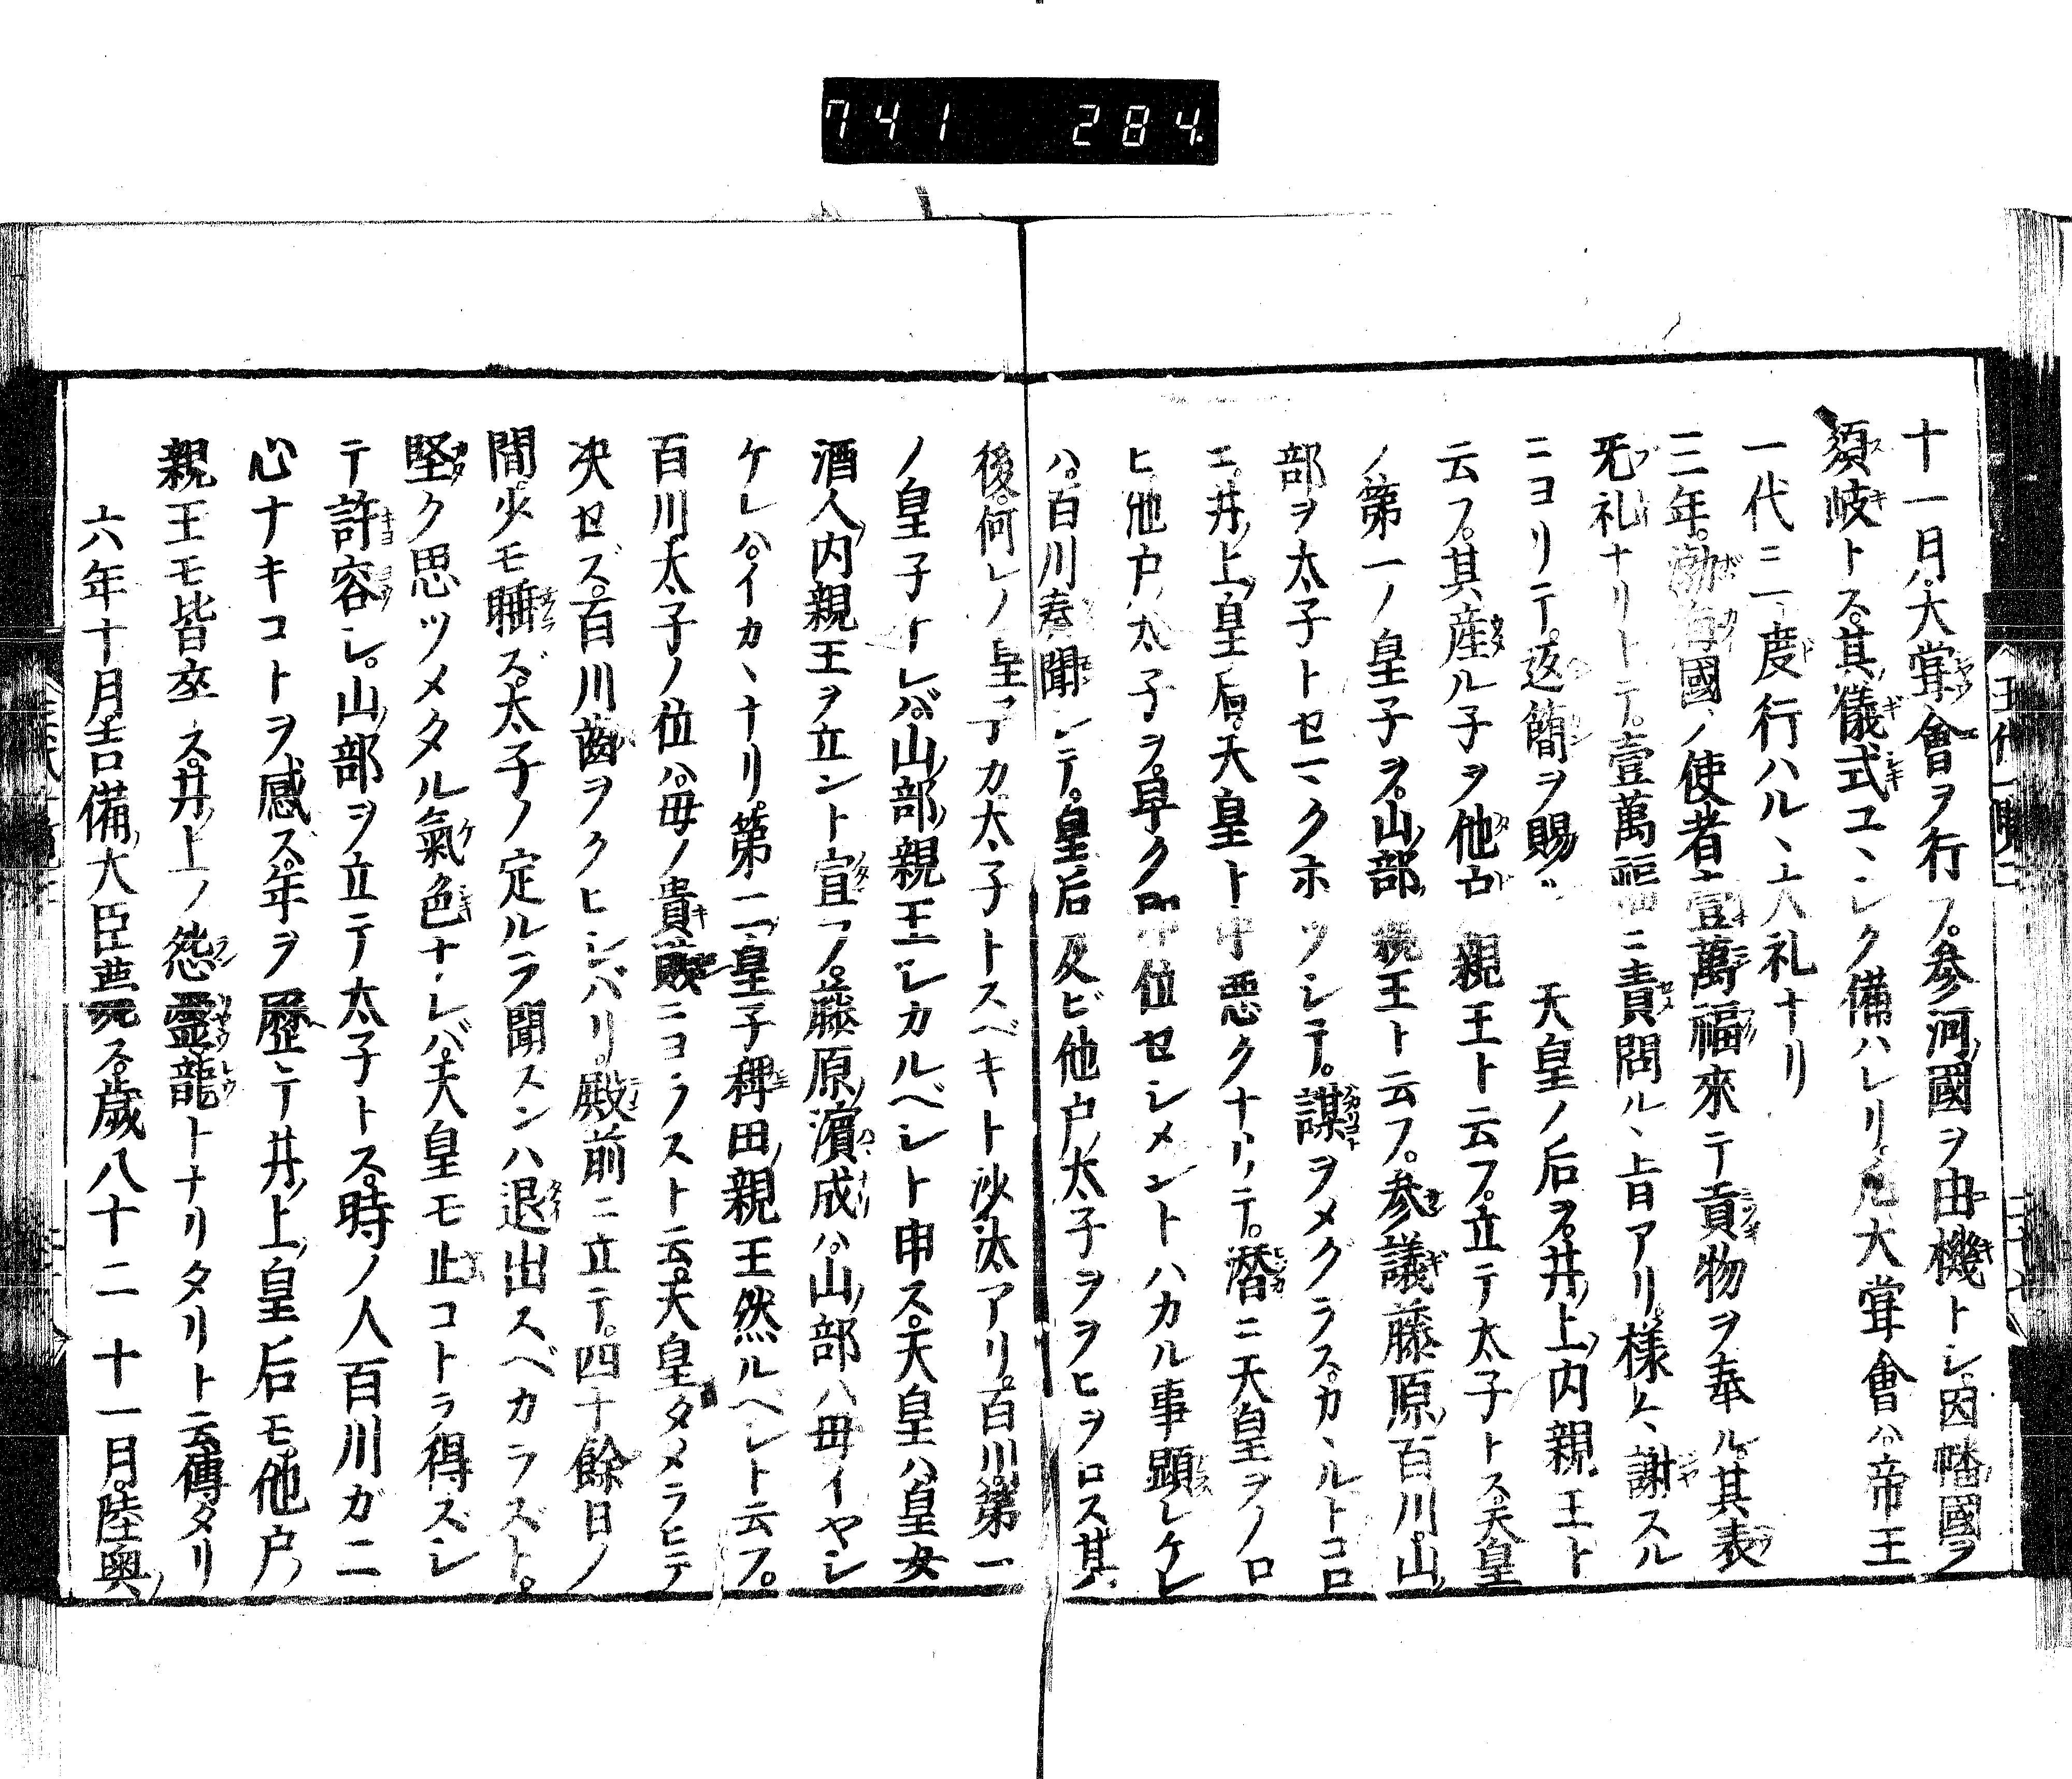 741 284
十一月。大甞會ヲ行フ。参河國ヲ由機トシ。因幡國ヲ
須岐トス。其儀式ユヽシク備ハレリ。凡大甞會ハ。帝王
一代ニ一度行ハルヽ大礼ナリ
三年。渤海國ノ使者壹萬福來テ貢物ヲ奉ル。其表
无礼ナリトテ。壹萬福ニ責問ルヽ旨アリ。様々謝スル
ニヨリテ。返簡ヲ賜フ 天皇ノ后ヲ。井上内親王ト
云フ。其産ル子ヲ他戸親王ト云フ。立テ太子トス。天皇
ノ第一ノ皇子ヲ。山部親王ト云フ。参議藤原百川。山
部ヲ太子トセマクホツシテ。謀ヲメグラス。カヽルトコロ
ニ。井上皇后。天皇ト中悪クナリテ。潜ニ天皇ヲノロ
ヒ。他戸太子ヲ。早ク即位セシメントハカル事顕レケレ
ハ。百川奏聞シテ。皇后及ビ他戸太子ヲヲヒヲロス。其
後。何レノ皇子カ太子トスベキト沙汰アリ。百川。第一
ノ皇子トレバ。山部親王シカルベシト申ス。天皇ハ。皇女
酒人内親王ヲ立ント宣フ。藤原濱成ハ。山部ハ母イヤシ
ケレハ。イカヽナリ。第二皇子稗田親王然ルベシト云フ。
百川太子ノ位ハ。母ノ貴賤ニヨラスト云。天皇タメラヒテ
决セズ。百川齒ヲクヒシバリ。殿前ニ立テ。四十餘日ノ
間。少モ睡ズ。太子ノ定ルヲ聞スンハ退出スベカラズト。
堅ク思ツメタル氣色ナレバ。天皇モ止コトヲ得ズシ
テ許容シ。山部ヲ立テ太子トス。時ノ人百川ガ二
心ナキコトヲ感ズ。年ヲ歴テ井上皇后モ。他戸
親王モ皆卒ス。井上ノ怨靈龍トナリタリト云傳タリ
六年十月吉備大臣薨ス。歳八十二 十一月。陸奥